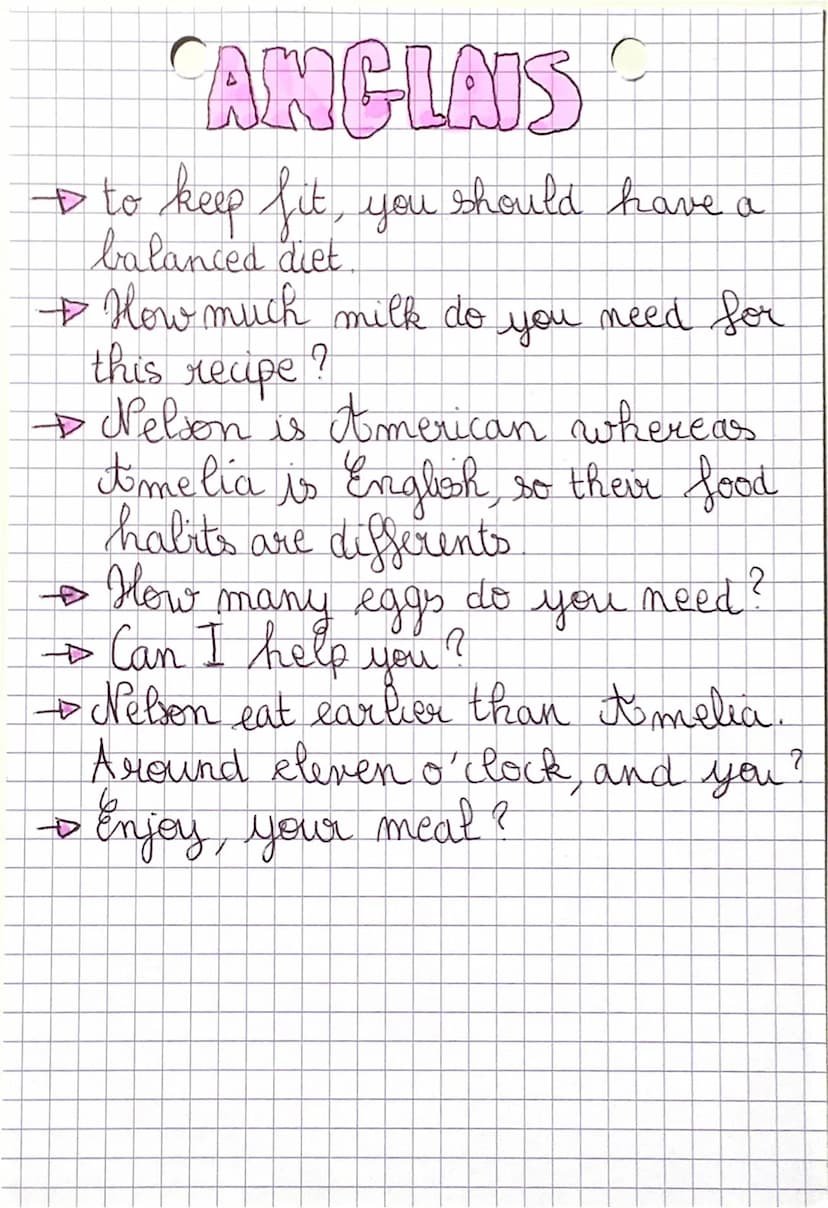 ANGLAIS
→ to keep fit, you should have a
balanced diet.
→ How much milk do you need for
this recipe ?
→ Nelson is American whereas
Amelia is English, so their food
habits are differents.
→ How many eggs do you need ?
→ Can I help you ?
→ Nelson eat earlier than Amelia.
Around eleven o'clock, and you ?
→ Enjoy, your meal ?